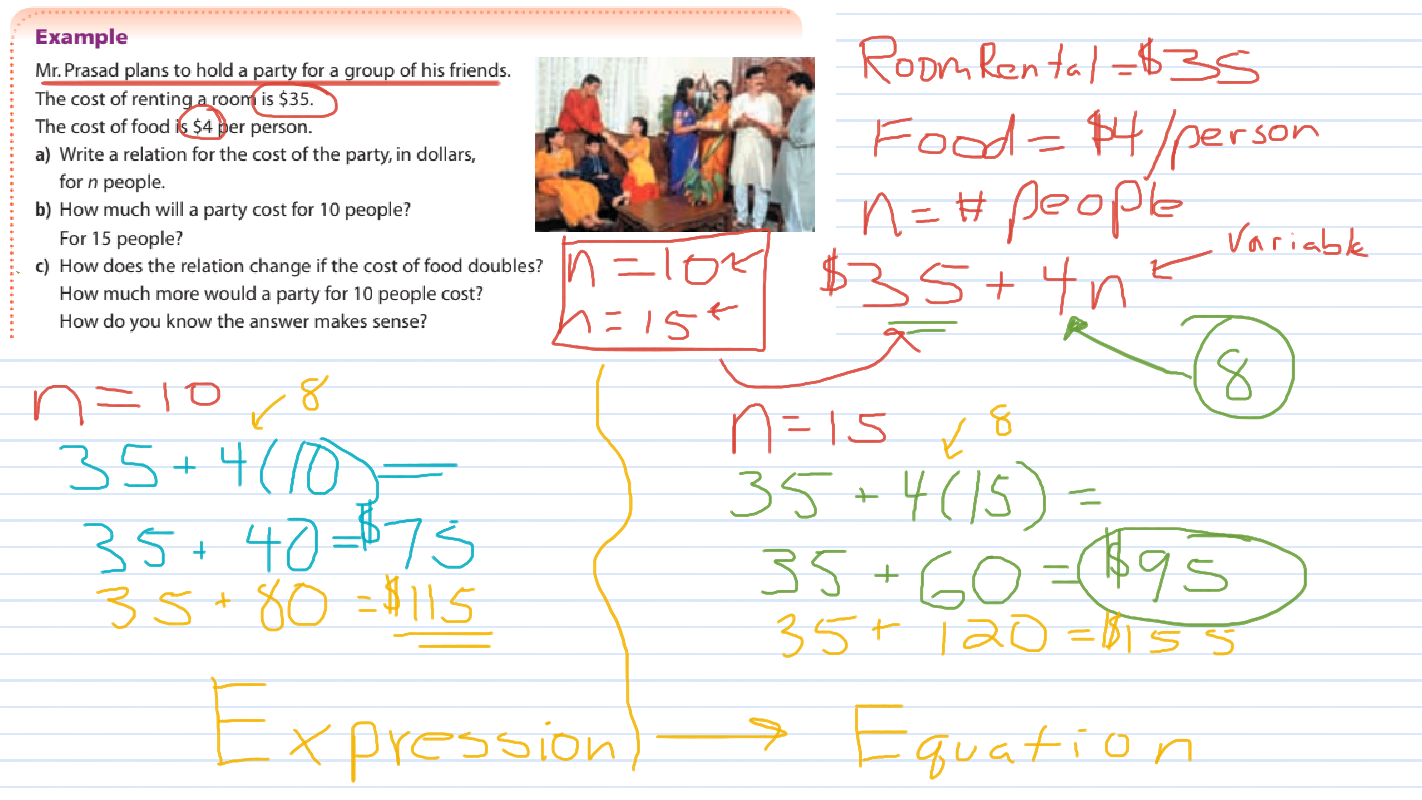 Example
Mr. Prasad plans to hold a party for a group of his friends.
The cost of renting a room is $35.
The cost of food is $4 per person.
a) Write a relation for the cost of the party, in dollars,
for n people.
b) How much will a party cost for 10 people?
For 15 people?
c) How does the relation change if the cost of food doubles?
How much more would a party for 10 people cost?
How do you know the answer makes sense?
Room Rental = $35
Food = $4/person
n = # people
Variable
$35 + 4n
8
n = 10
n = 15
n = 10
8
35 + 4(10) =
35 + 40 = $75
35 + 80 = $115
n = 15
8
35 + 4(15) =
35 + 60 = $95
35 + 120 = $155
Expression → Equation